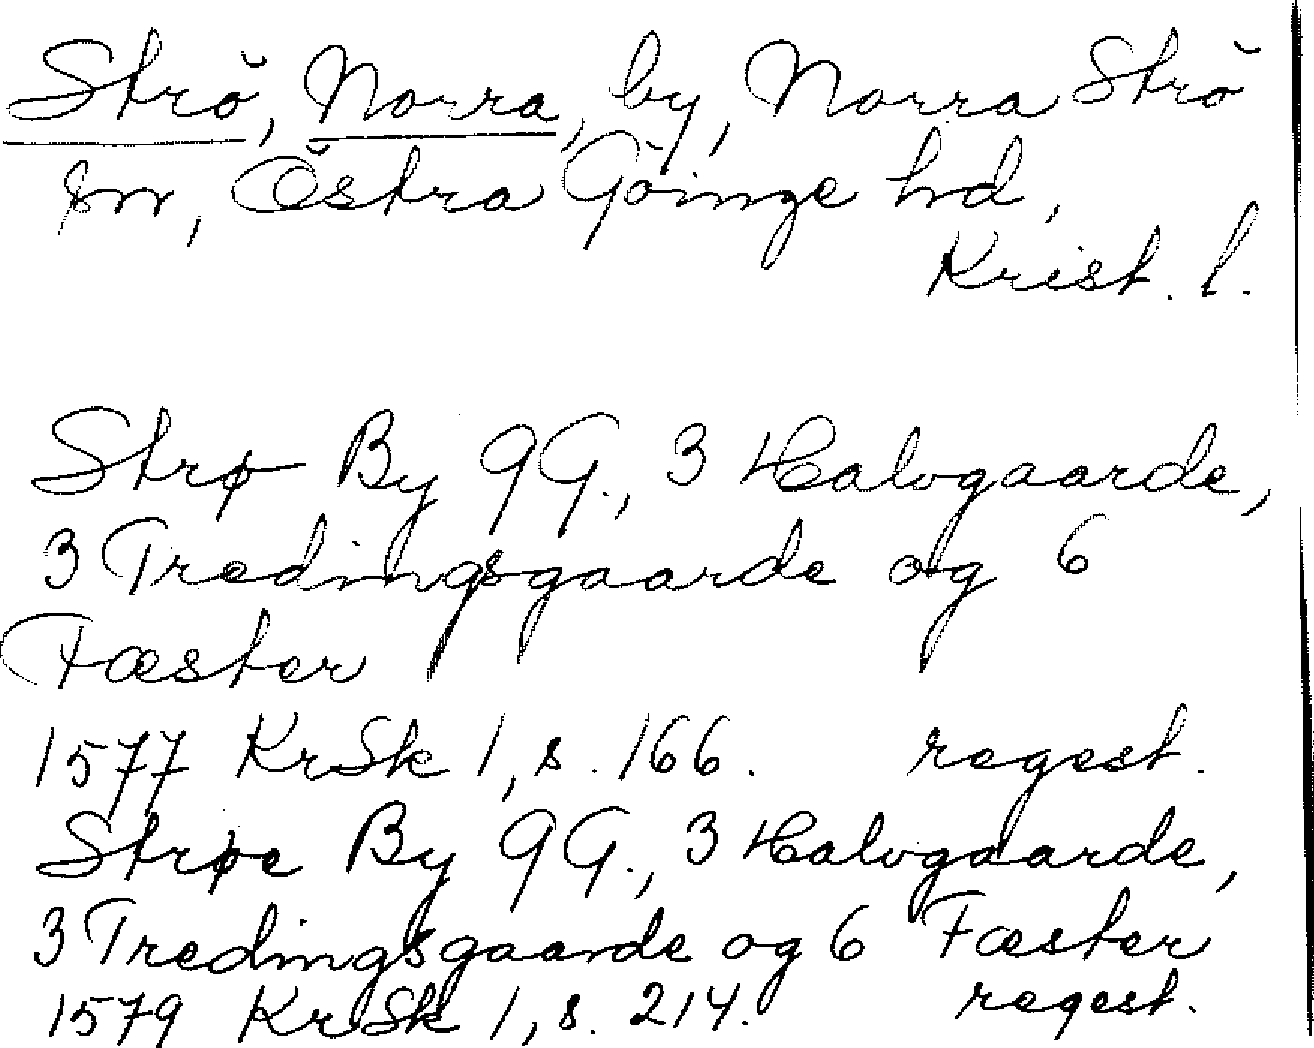 Strö, Norra, by, Norra Strö
sn, Östra Göinge hd,
Krist. l.
Strø By 9 G., 3 Halvgaarde,
3 Tredingsgaarde og 6
Fæster
1577 KrSk 1, s. 166. regest.
Strøe By 9 G., 3 Halvgaarde,
3 Tredingsgaarde og 6 Fæster
1579 KrSk 1, s. 214. regest.